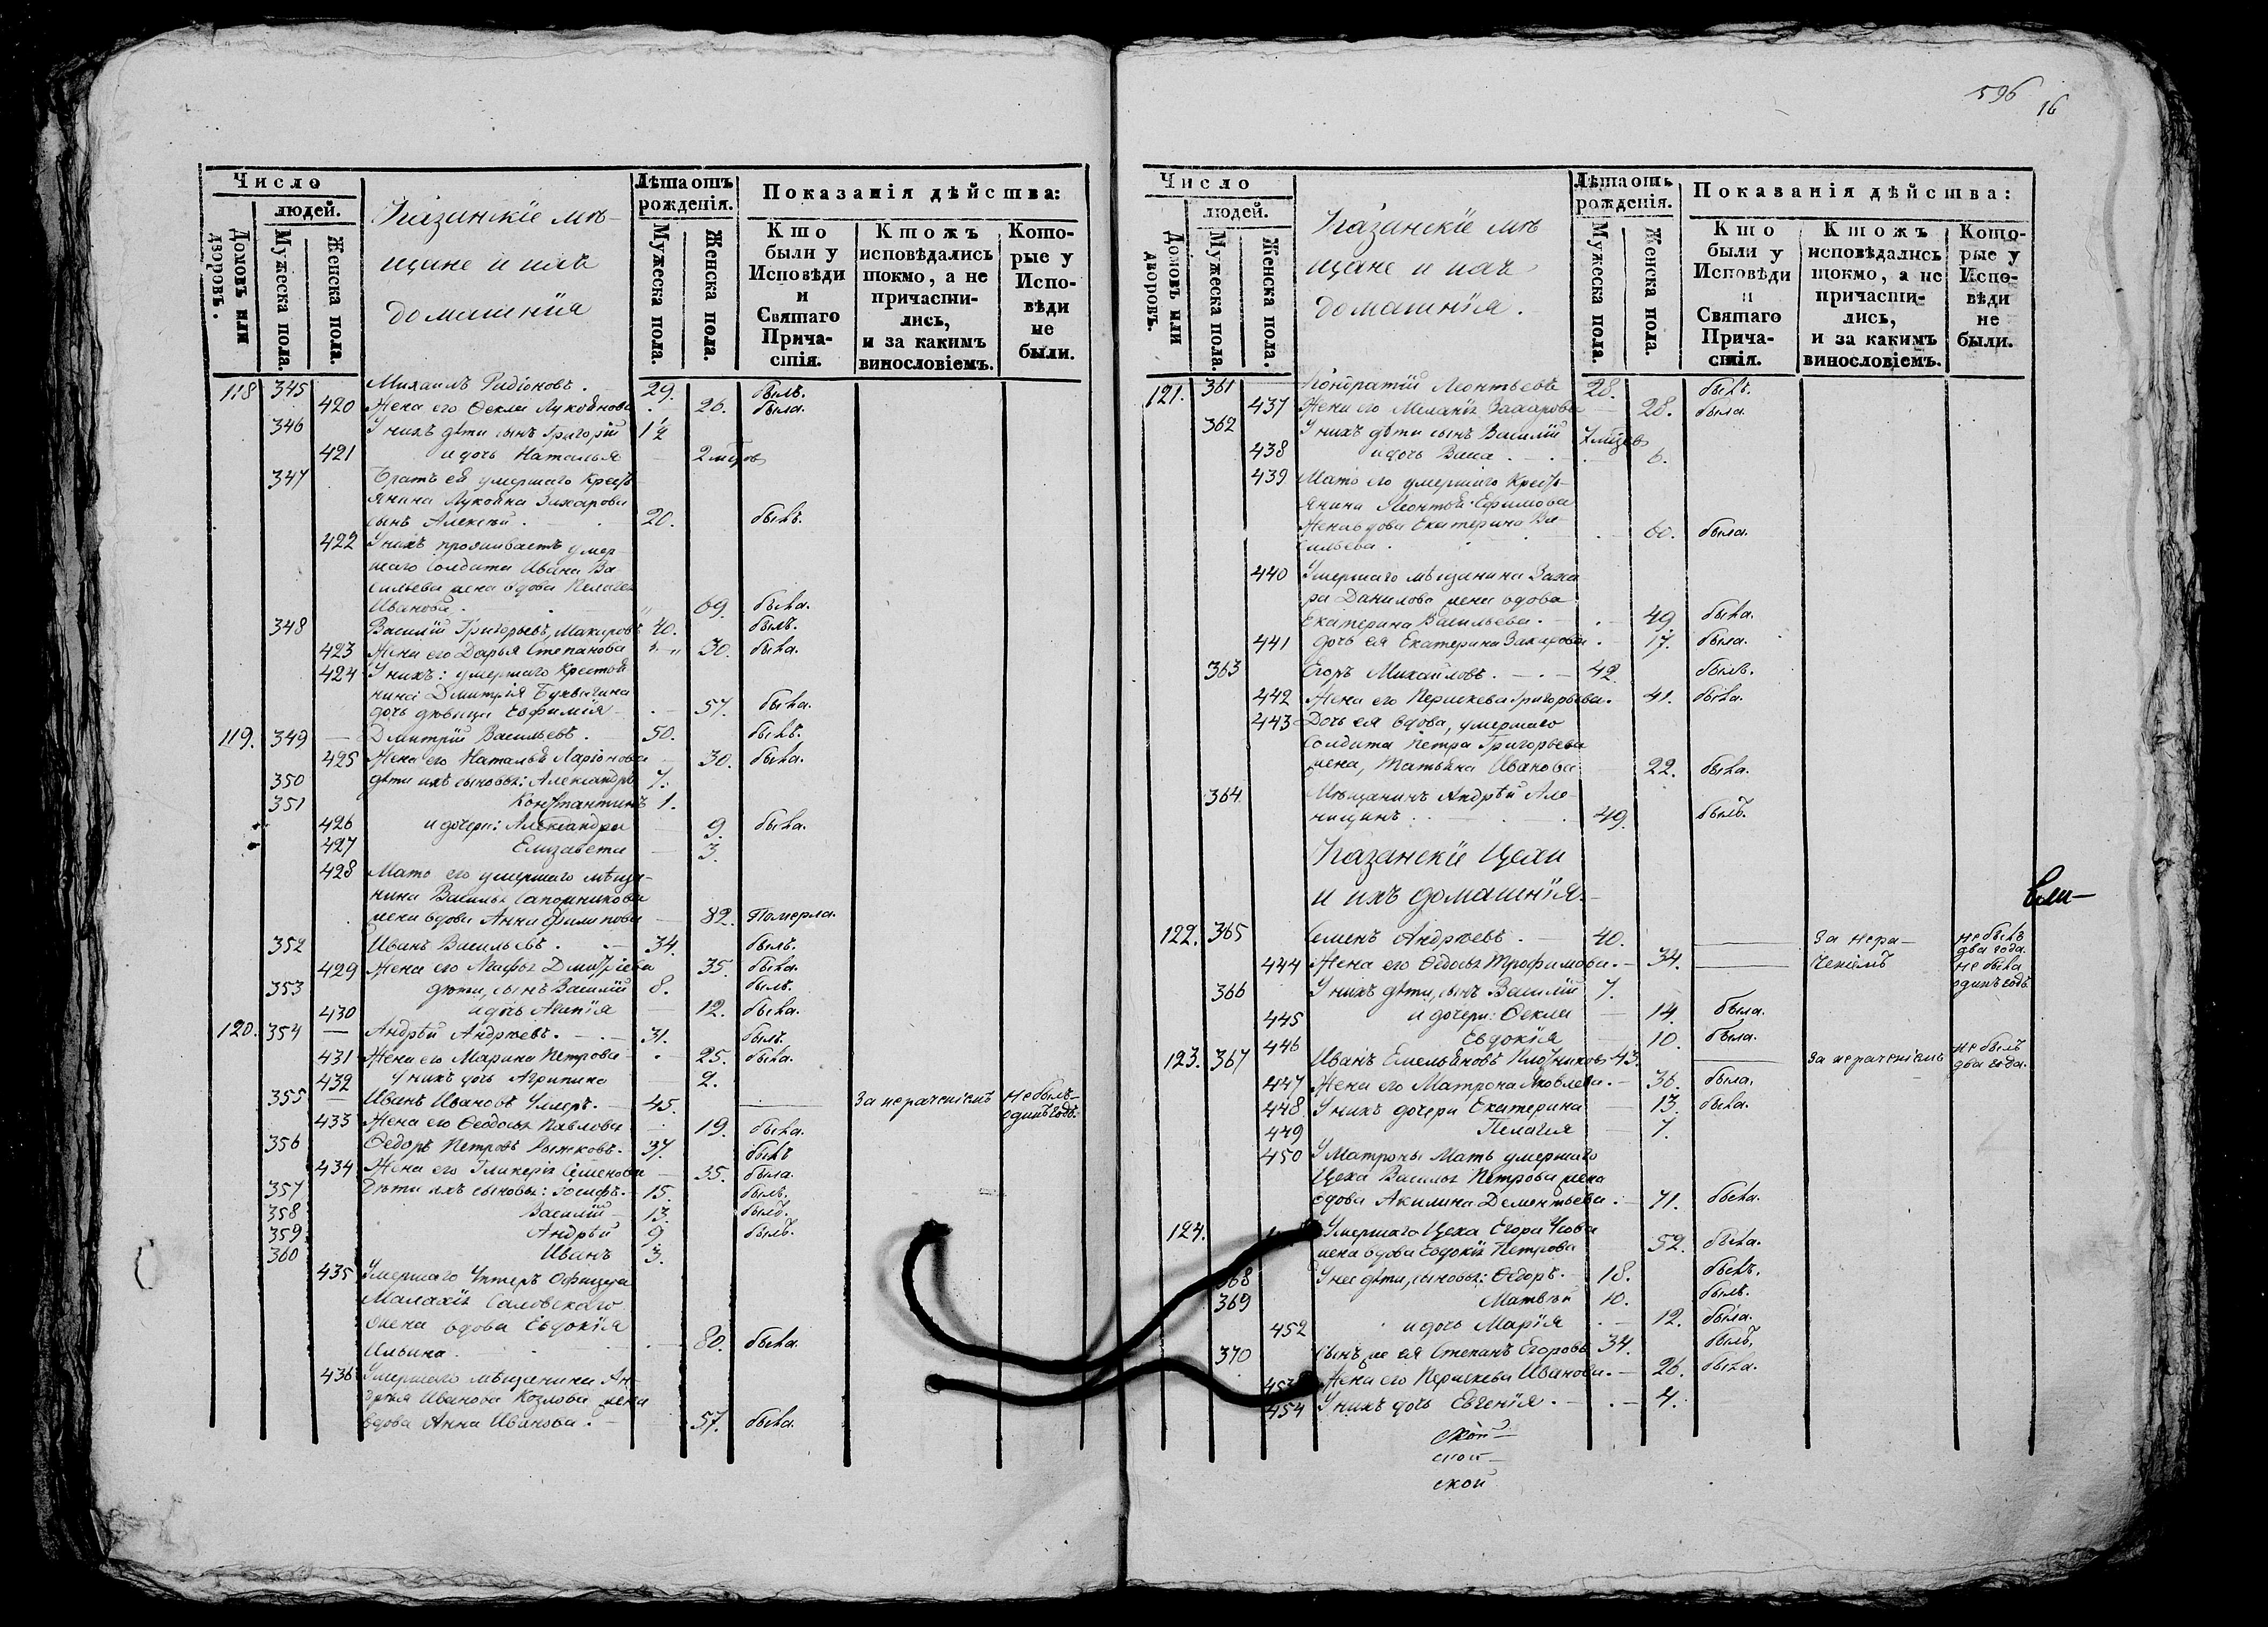 Число
людей.
Домовъ или дворовъ.
Мужеска пола.
Женска пола.
Казанскіе мѣ-
щане и ихъ
домашнія
Лѣта отъ
рожденія.
Мужеска пола.
Женска пола.
Показанія дѣйства:
Кто
были у
Исповѣди
и
Святаго
Прича-
стія.
Ктожъ
исповѣдались
токмо, а не
причасти-
лись,
и за какимъ
винословіемъ.
Кото-
рые у
Испо-
вѣди
не
были.
118 345 Михаилъ Радіоновъ. 29. былъ.
420 Жена его Ѳекла Лукоянова 26. была.
346 У нихъ дѣти сынъ Григорій 1½
421 и дочь Наталья 2
347 Братъ ея умершаго Кресть
янина Лукояна Захарова
сынъ Алексѣй 20. былъ.
422 У нихъ проживаетъ умер-
шаго Солдата Ивана Ва
сильева жена вдова Пелагея
Иванова. 69. была.
348 Василій Григорьевъ, 40. былъ.
423 Жена его Дарья Степанова 30. была.
424 У нихъ: умершаго Крестья
нина Дмитрія
дочь дѣвица Евфимія 57. была.
119. 349 Дмитрій Васильевъ. 50. былъ.
425 Жена его Наталья Ларіонова 30. была.
350 дѣти ихъ сыновья: Александръ 7.
351 Константинъ 1.
426 и дочери: Александра 9. была.
427 Елизавета 3.
428 Мать его умершаго мѣща-
нина Василья Сапожникова
жена вдова Анна Филипова 82. Померла.
352 Иванъ Васильевъ. 34. былъ.
429 Жена его Агафья Дмитріева 35. была.
353 дѣти, сынъ Василій 8. былъ.
430 и дочь 12. была.
120. 354 Андрѣй Андрѣевъ. 31. былъ.
431 Жена его Марина Петрова 25. была.
432 У нихъ дочь Агрипина 2.
355 Иванъ Ивановъ Умеръ. 45. За нераченіемъ Не былъ
одинъ годъ.
433 Жена его Ѳеодосья Павлова 19. была.
356 Ѳедоръ Петровъ Рыжковъ. 37. былъ
434 Жена его Гликерія Семенова 35. была.
357 Дѣти ихъ сыновья: Іосифъ. 15. былъ.
358 Василій 13. былъ.
359 Андрѣй 9. былъ.
360 Иванъ 3.
435 Умершаго Унтеръ Офицера
Малахія
жена вдова Евдокія
Ильина 80. была.
436 Умершаго мѣщанина Ан-
дрѣя Иванова Козлова жена
вдова Анна Иванова. 57. была.
596
16
Число
людей.
Домовъ или дворовъ.
Мужеска пола.
Женска пола.
Казанскіе мѣ
щане и ихъ
домашнія.
Лѣта отъ
рожденія.
Мужеска пола.
Женска пола.
Показанія дѣйства:
Кто
были у
Исповѣди
и
Святаго
Прича-
стія.
Ктожъ
исповѣдались
токмо, а не
причасти-
лись,
и за какимъ
винословіемъ.
Кото-
рые у
Испо-
вѣди
не
были.
121. 361 Кондратій Леонтьевъ 28. былъ.
437 Жена его Меланія Захарова 28. была.
362 У нихъ дѣти сынъ Василій 7
438 и дочь 6.
439 Мать его умершаго Кресть-
янина Леонтья Ефимова
жена вдова Екатерина Ва-
сильева. 60. была.
440 Умершаго мѣщанина Заха
ра Данилова жена вдова
Екатерина Васильева. 49. была.
441 дочь ея Екатерина Захарова. 17. была.
363 Егоръ Михайловъ. 42. былъ.
442 Жена его Параскева Григорьева. 41. была.
443 Дочь ея вдова, умершаго
Солдата Петра Григорьева
жена, Татьяна Иванова 22. была.
364 Мѣщанинъ Андрѣй Але-
нищинъ 49. былъ.
Казанскіе Цехи
и ихъ домашнія.
122. 365 Семенъ Андрѣевъ. 40. За нера- не былъ
два года.
444 Жена его Ѳедосья Трофимова. 34. ченіемъ не была
одинъ годъ.
366 У нихъ дѣти, сынъ Василій 7.
445 и дочери: Ѳекла 14. была.
446 Евдокія 10. была.
123. 367 Иванъ Емельяновъ Плотниковъ 43. За нераченіемъ не былъ
два года.
447 Жена его Матрона Яковлева. 36. была.
448 У нихъ дочери Екатерина 13. была.
449 Пелагея 7.
450 У Матроны Мать умершаго
Цеха Василья Петрова жена
вдова Акилина Дементьева. 71. была.
124. Умершаго Цеха Егора
жена вдова Евдокія Петрова 52. была.
368 У нея дѣти, сыновья: Ѳедоръ. 18. былъ.
369 Матвѣй 10. былъ.
452 и дочь Марія 12. была.
370 Сынъ же ея Степанъ Егоровъ 34. былъ.
453 Жена его Параскева Иванова. 26. была.
454 У нихъ дочь Евгенія. 4.
ской
ской